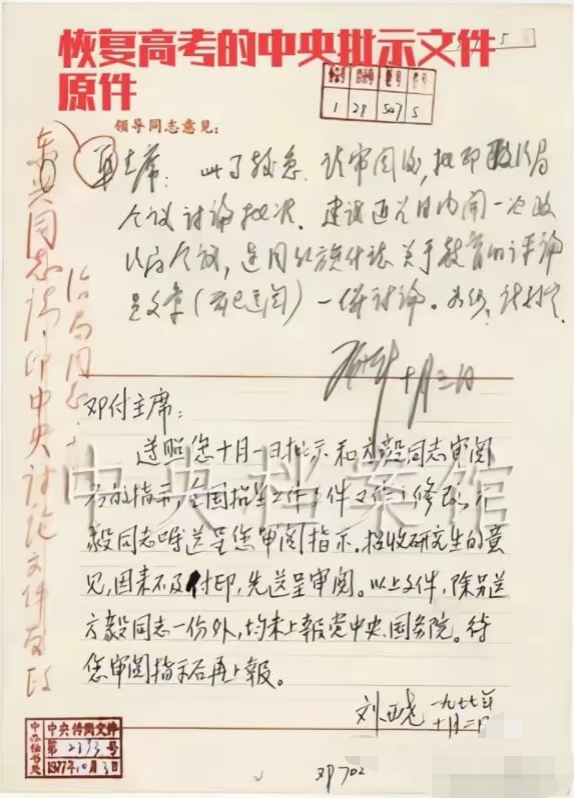 恢复高考的中央批示文件
原件
5
1 28 507 5
领导同志意见：
华主席：此事较急，请审阅后，批印政治局
会议讨论批准。建议近几日内开一次政
治局会议，连同红旗
关于教育的评论
文章（
）一併讨论。
十月三日
东兴同志请印中央
政
治局同志
讨论文件
邓付主席：
遵照您十月一日批示和方毅同志审阅
后的指示，全国招生工作文件又作了修改，方
毅同志嘱送呈您审阅指示。招收研究生的意
见，因来不及付印，先送呈审阅。以上文件，除另送
方毅同志一份外，均未上報党中央、国务院。待
您审阅指示后再上報。
刘西尧 一九七七年
十月三日
中央档案馆
中办秘书处
中央传阅文件
第2393号
1977年10月3日
邓702